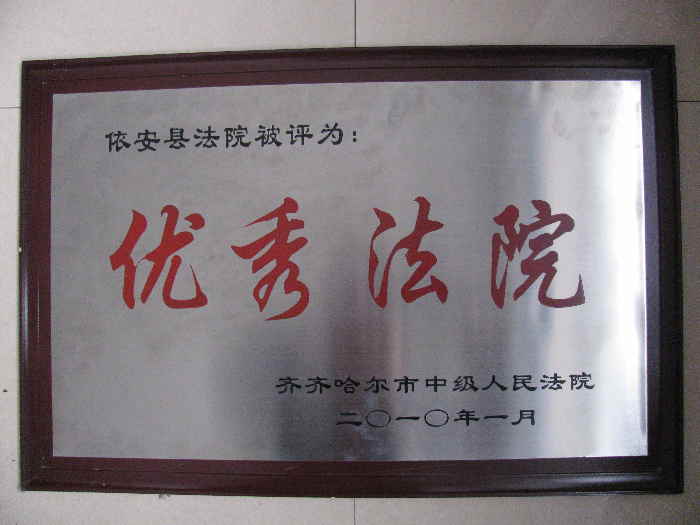 依安县法院被评为：
优秀法院
齐齐哈尔市中级人民法院
二〇一〇年一月